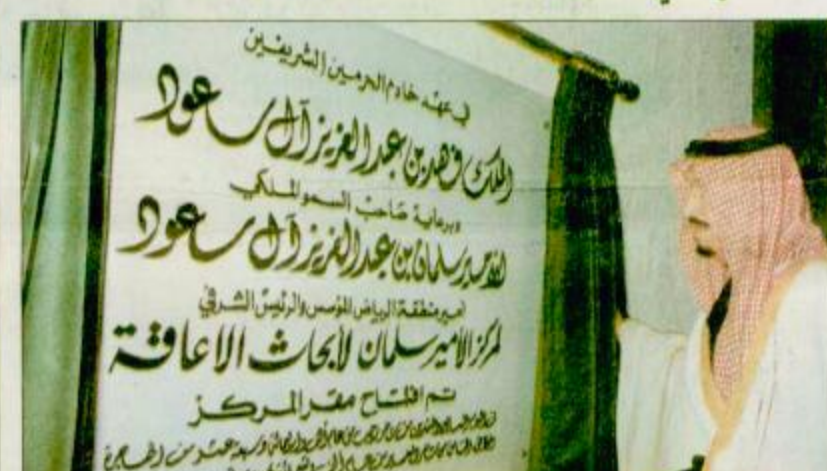 في عهد خادم الحرمين الشريفين
الملك فهد بن عبد العزيز آل سعود
وبرعاية صاحب السمو الملكي
الأمير سلمان بن عبد العزيز آل سعود
أمير منطقة الرياض المؤسس والرئيس الشرفي
لمركز الأمير سلمان لأبحاث الاعاقة
تم افتتاح مقر المركز
وسبعة عشر من الهجرة